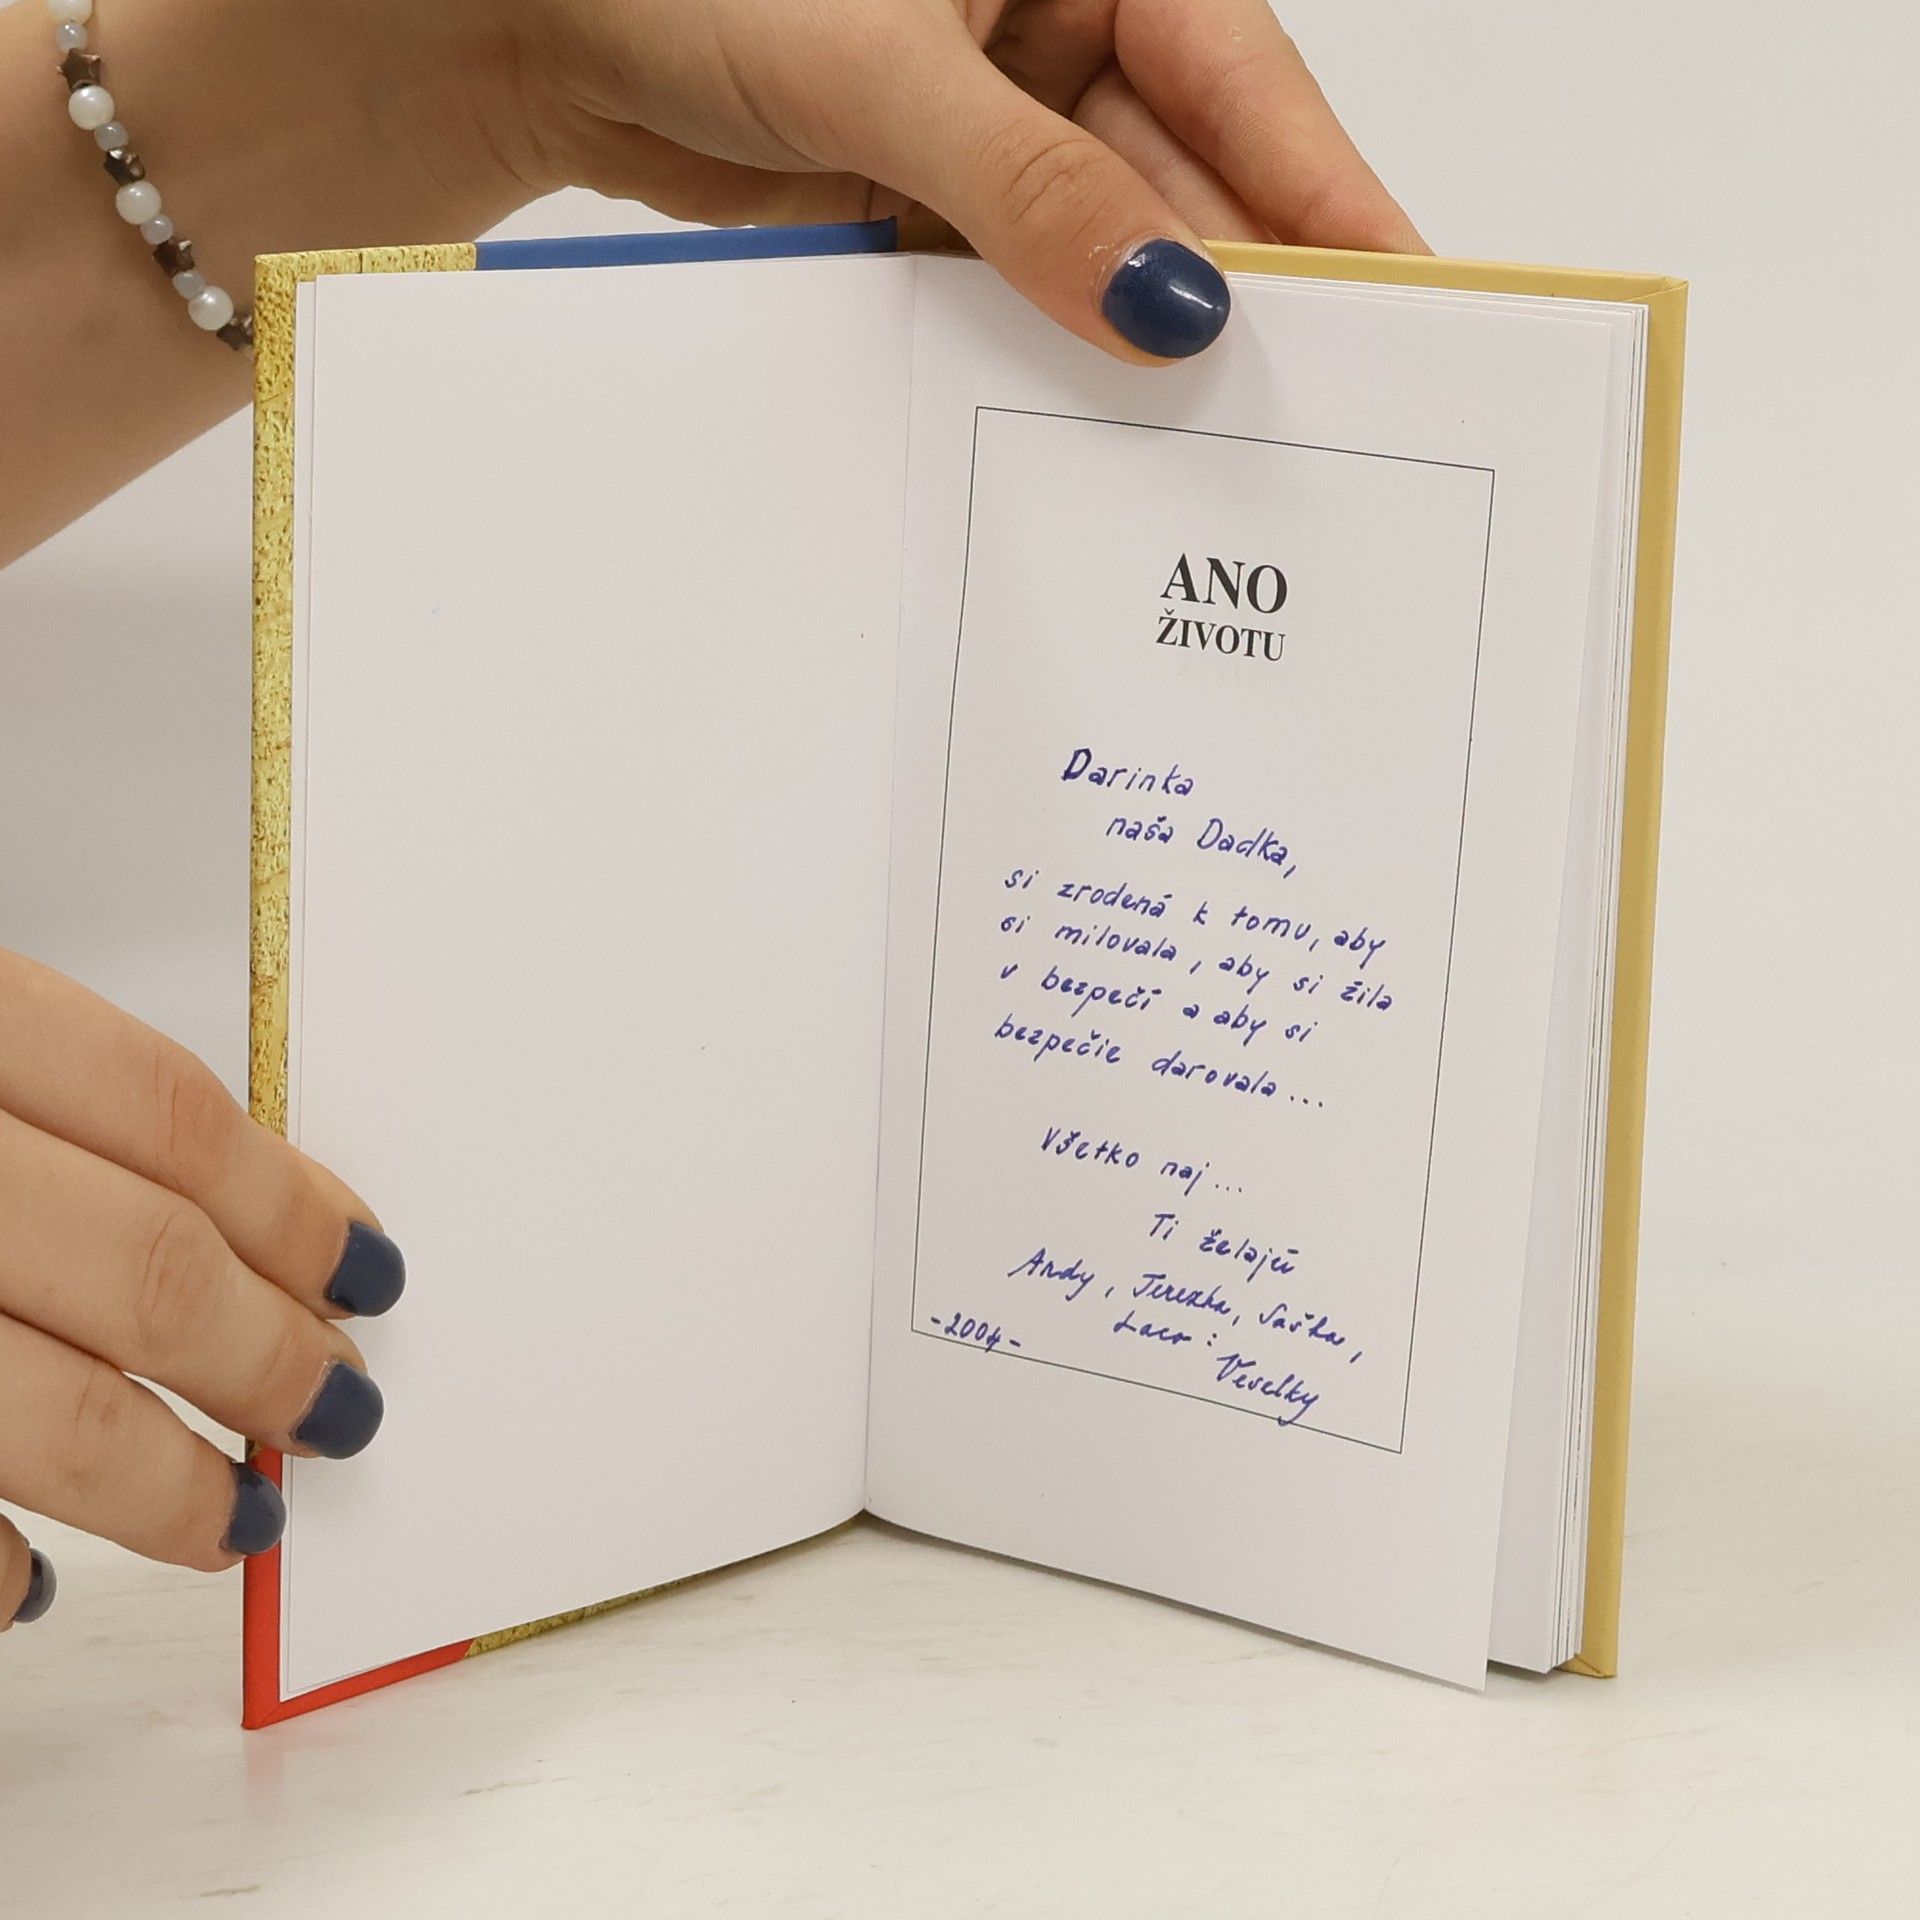 ANO
ŽIVOTU
Darinka
naša Dadka,
si zrodená k tomu, aby
si milovala, aby si žila
v bezpečí a aby si
bezpečie darovala...
Všetko naj...
Ti želajú
Andy, Terezka, Saška,
-2004- Laco :
Veselky